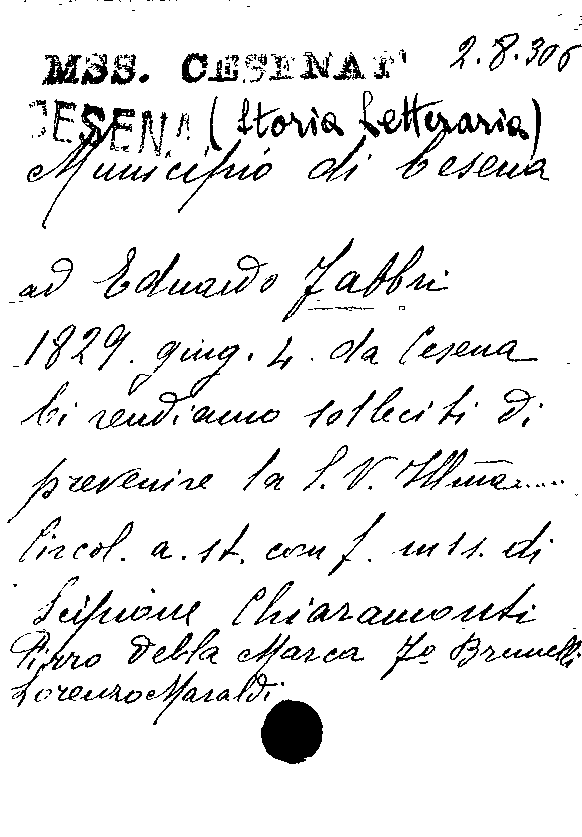 MSS. CESENAT 2.8.306
CESENA (Storia Letteraria)
Municipio di Cesena
ad Eduardo Fabbri
1829. giug. 4. da Cesena
Ci rendiamo solleciti di
prevenire la S. V. Illma.....
Circol. a. st. con f. mss. di
Scipione Chiaramonti
Pirro della Massa Fo Brunelli
Lorenzo Maraldi